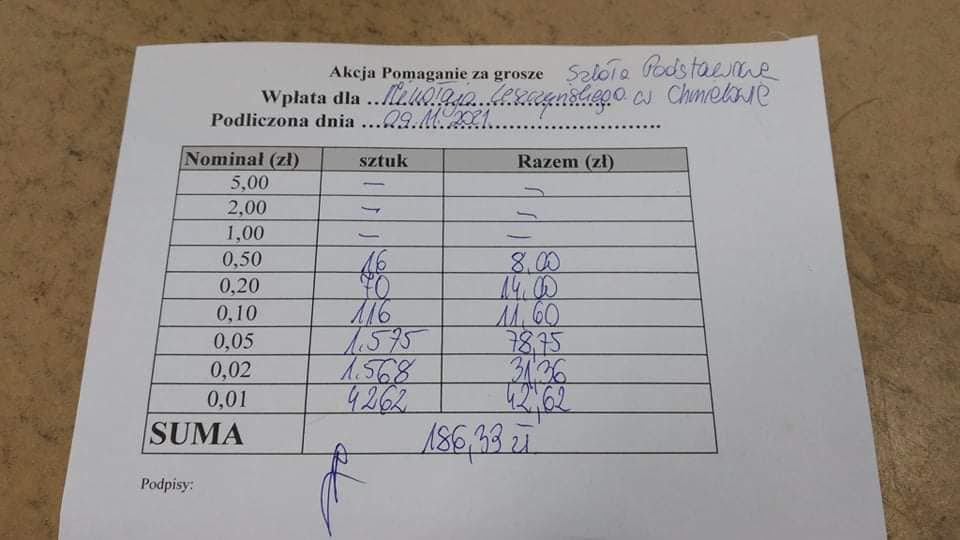 Akcja Pomaganie za grosze Szkoła Podstawowa
Wpłata dla Mikołaja Leszczyńskiego w Chmielowie
Podliczona dnia 09.11.2021
Nominał (zł) sztuk Razem (zł)
5,00 — —
2,00 — —
1,00 — —
0,50 16 8,00
0,20 70 14,00
0,10 116 11,60
0,05 1.575 78,75
0,02 1.568 31,36
0,01 4262 42,62
SUMA 186,33 zł
Podpisy: